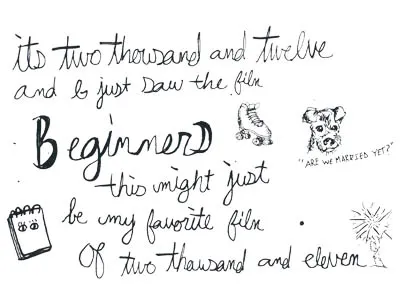 its two thousand and twelve
and I just saw the film
Beginners
"ARE WE MARRIED YET?"
this might just
be my favorite film
of two thousand and eleven